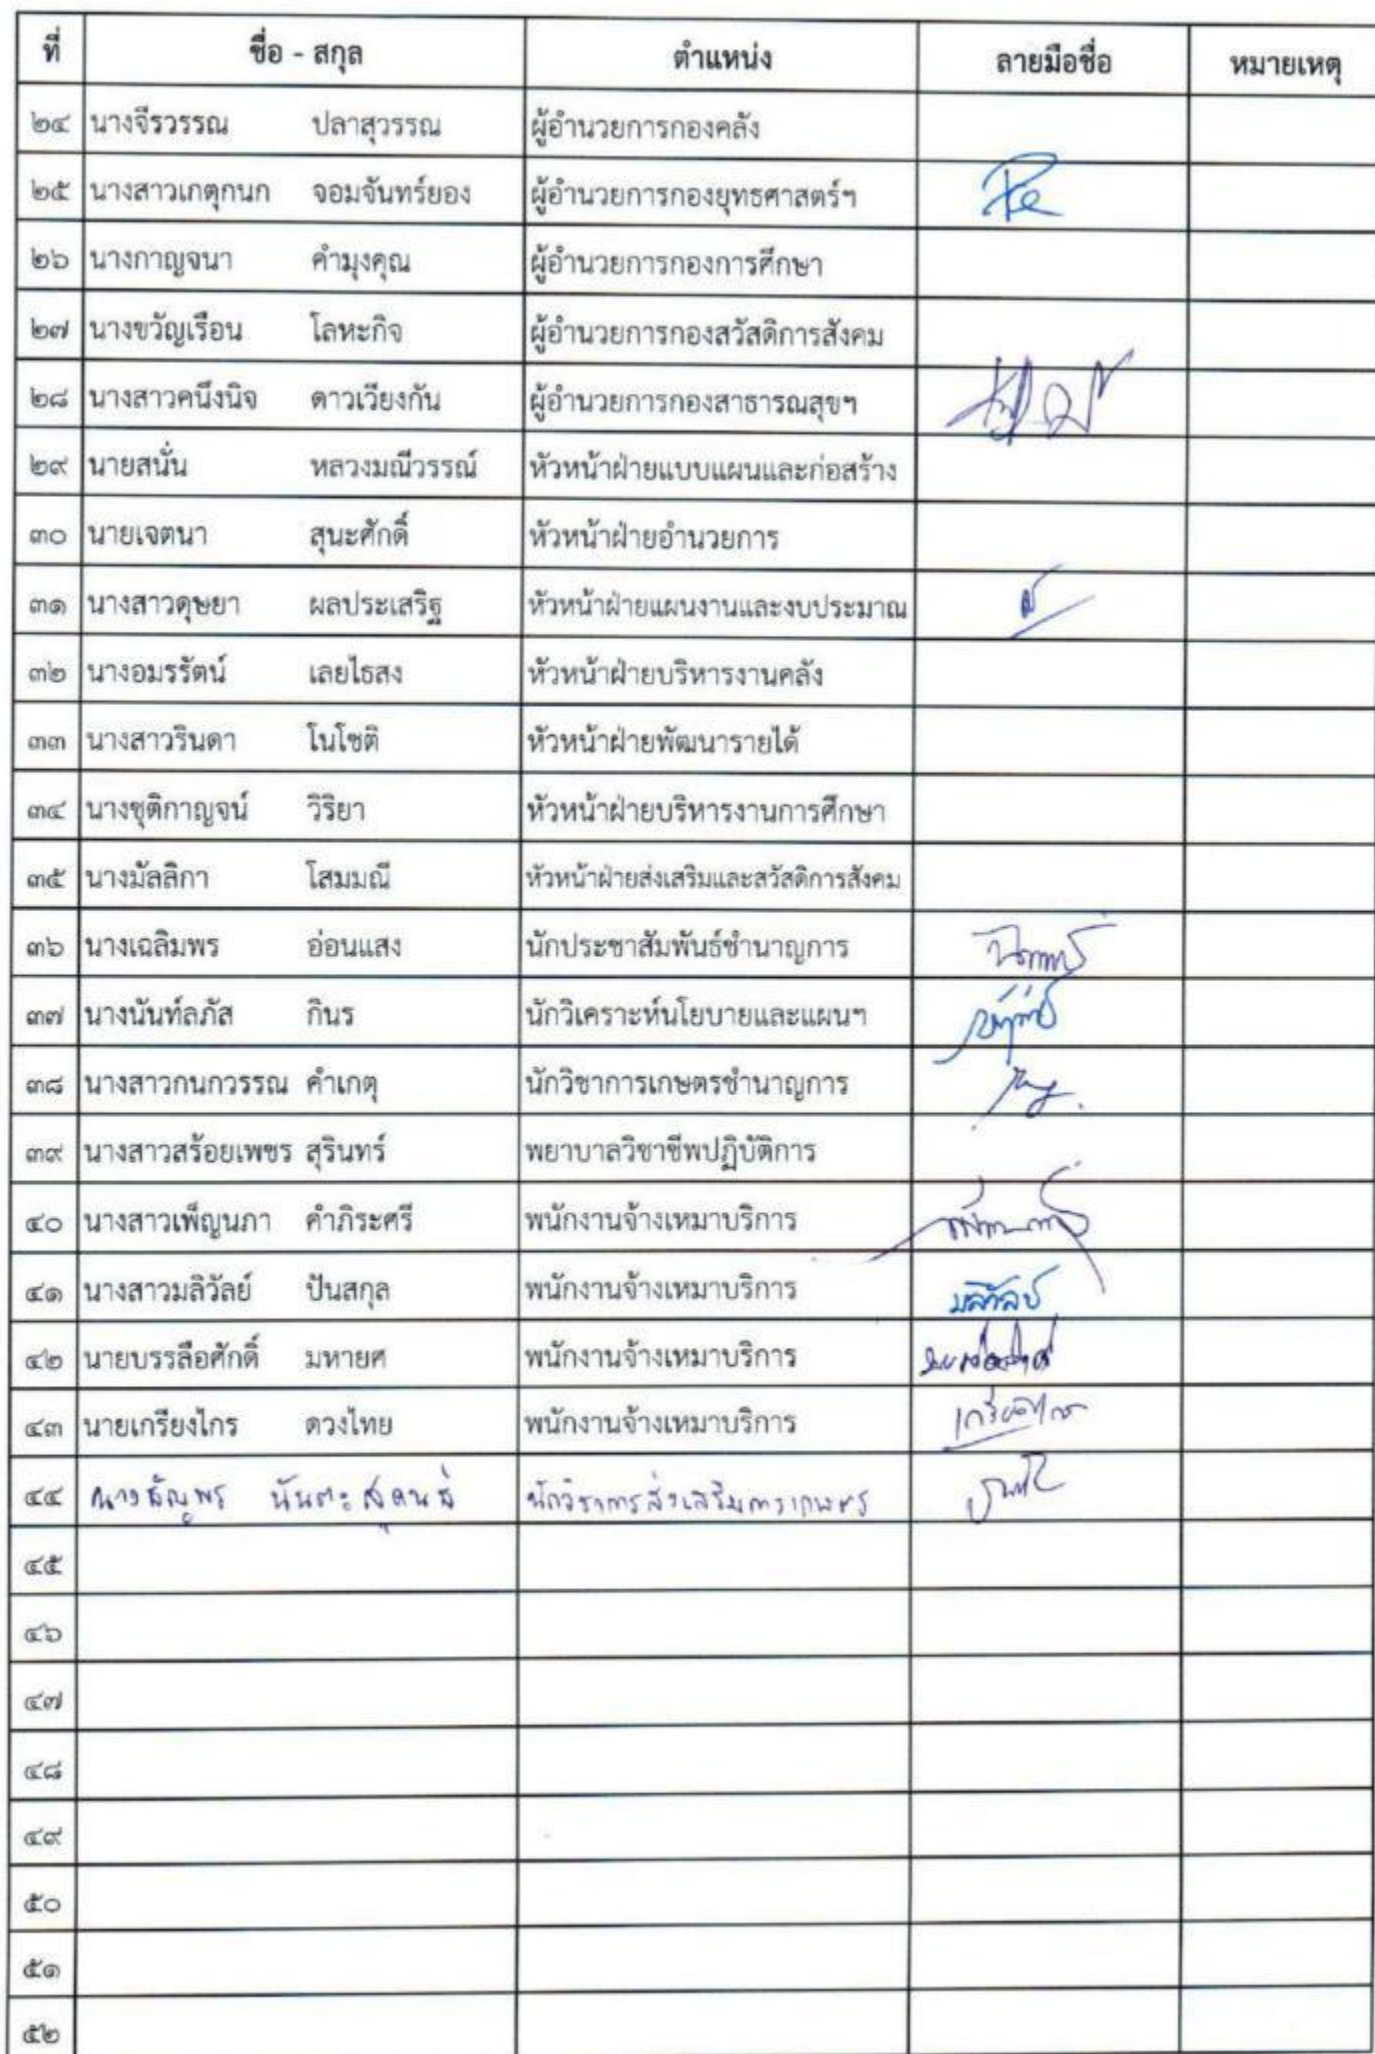 ที่ ชื่อ - สกุล ตำแหน่ง ลายมือชื่อ หมายเหตุ
๒๔ นางจีรวรรณ ปลาสุวรรณ ผู้อำนวยการกองคลัง
๒๕ นางสาวเกตุกนก จอมจันทร์ยอง ผู้อำนวยการกองยุทธศาสตร์ฯ
๒๖ นางกาญจนา คำมุงคุณ ผู้อำนวยการกองการศึกษา
๒๗ นางขวัญเรือน โลหะกิจ ผู้อำนวยการกองสวัสดิการสังคม
๒๘ นางสาวคนึงนิจ ดาวเวียงกัน ผู้อำนวยการกองสาธารณสุขฯ
๒๙ นายสนั่น หลวงมณีวรรณ์ หัวหน้าฝ่ายแบบแผนและก่อสร้าง
๓๐ นายเจตนา สุนะศักดิ์ หัวหน้าฝ่ายอำนวยการ
๓๑ นางสาวดุษยา ผลประเสริฐ หัวหน้าฝ่ายแผนงานและงบประมาณ
๓๒ นางอมรรัตน์ เลยไธสง หัวหน้าฝ่ายบริหารงานคลัง
๓๓ นางสาวรินดา โนโชติ หัวหน้าฝ่ายพัฒนารายได้
๓๔ นางชุติกาญจน์ วิริยา หัวหน้าฝ่ายบริหารงานการศึกษา
๓๕ นางมัลลิกา โสมมณี หัวหน้าฝ่ายส่งเสริมและสวัสดิการสังคม
๓๖ นางเฉลิมพร อ่อนแสง นักประชาสัมพันธ์ชำนาญการ
๓๗ นางนันท์ลภัส กินร นักวิเคราะห์นโยบายและแผนฯ
๓๘ นางสาวกนกวรรณ คำเกตุ นักวิชาการเกษตรชำนาญการ
๓๙ นางสาวสร้อยเพชร สุรินทร์ พยาบาลวิชาชีพปฏิบัติการ
๔๐ นางสาวเพ็ญนภา คำภิระศรี พนักงานจ้างเหมาบริการ
๔๑ นางสาวมลิวัลย์ ปันสกุล พนักงานจ้างเหมาบริการ มลิวัลย์
๔๒ นายบรรลือศักดิ์ มหายศ พนักงานจ้างเหมาบริการ
๔๓ นายเกรียงไกร ดวงไทย พนักงานจ้างเหมาบริการ เกรียงไกร
๔๔ นางธัญพร นักวิชาการส่งเสริมการเกษตร
๔๕
๔๖
๔๗
๔๘
๔๙
๕๐
๕๑
๕๒